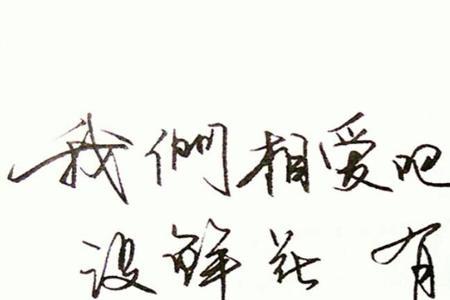 我們相爱吧
没鲜花 有